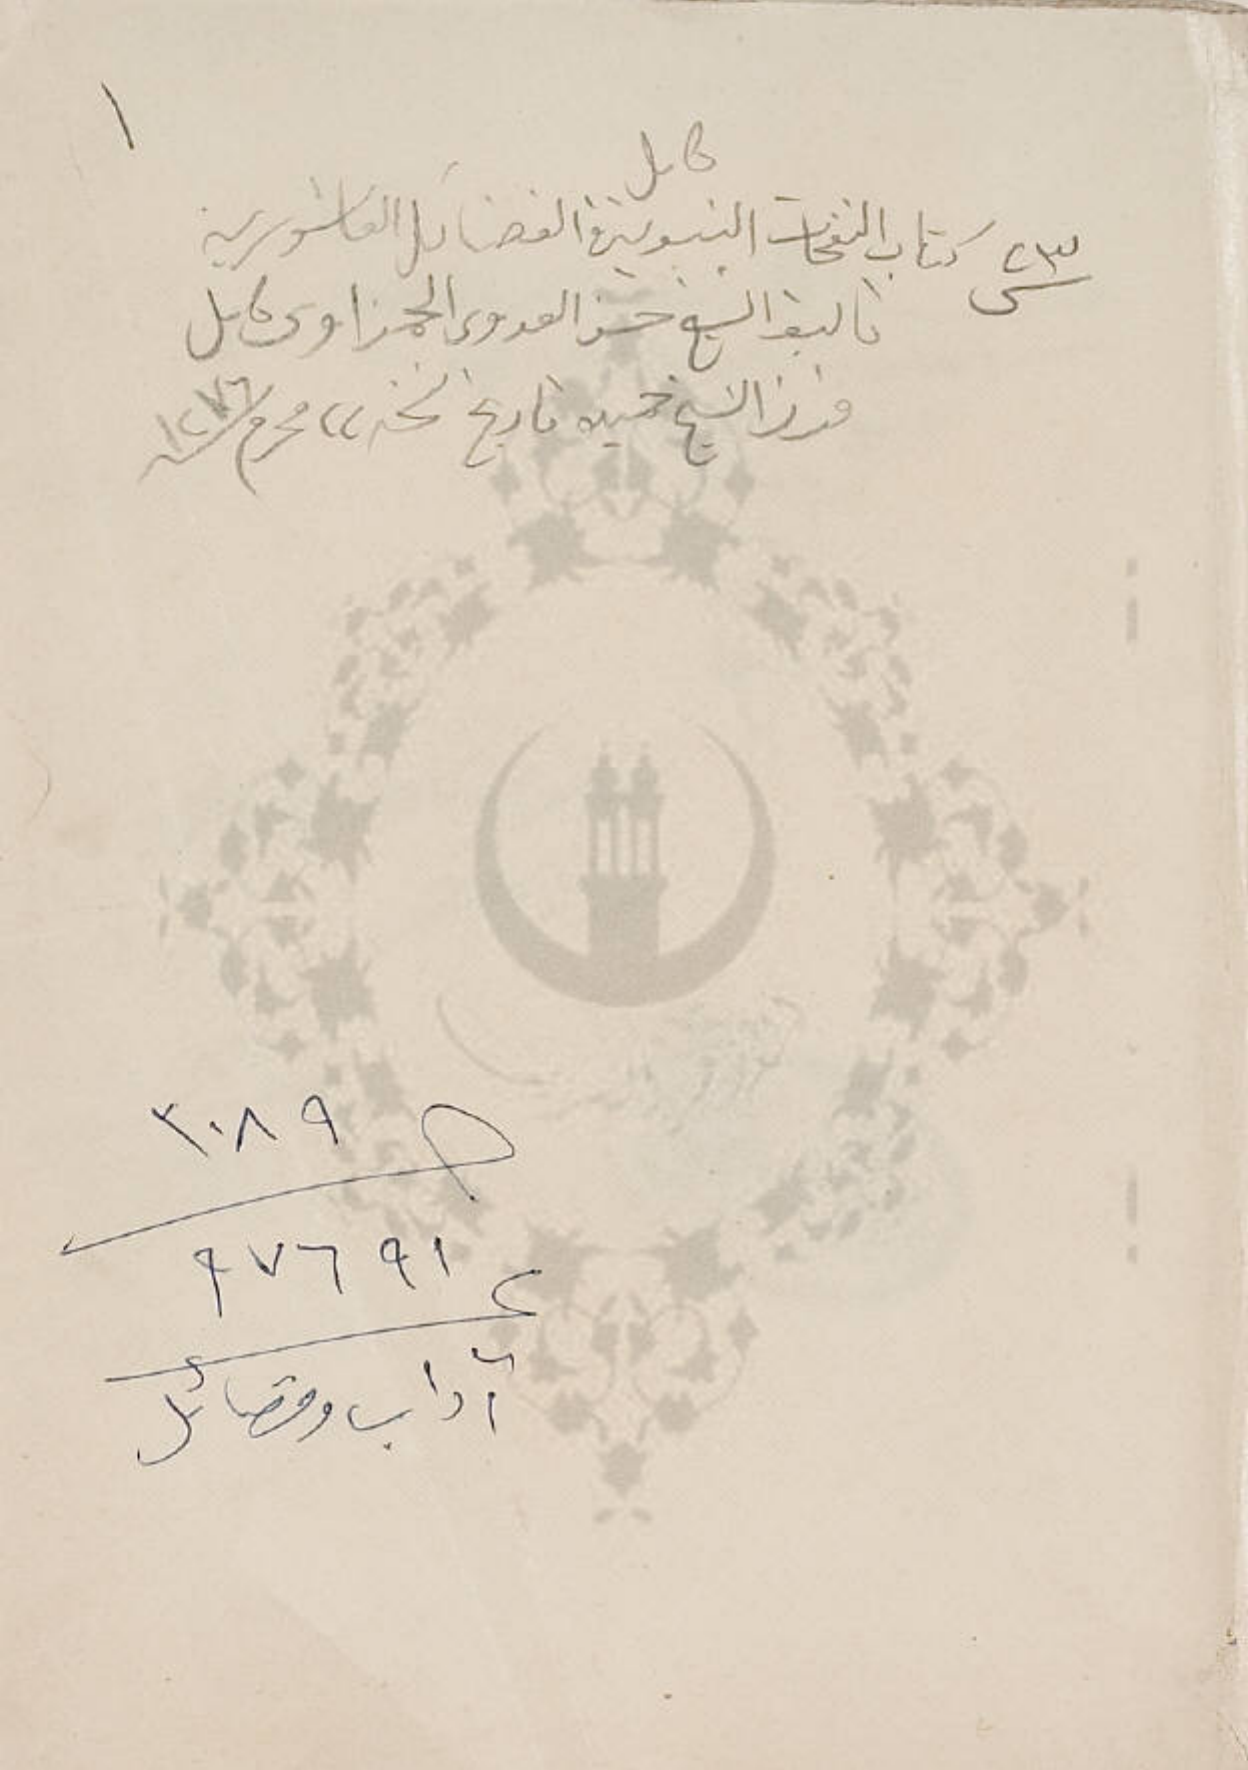 ١
كامل
كتاب النفحات النبوية في الفضائل العاشورية
تأليف الشيخ حسن العدوى الحمزاوى كامل
فرز الشيخ حميده تاريخ نسخه ٢٢ محرم ١٢٧٦
٣٠٨٩
٩٧٦٩١
آداب وفضائل